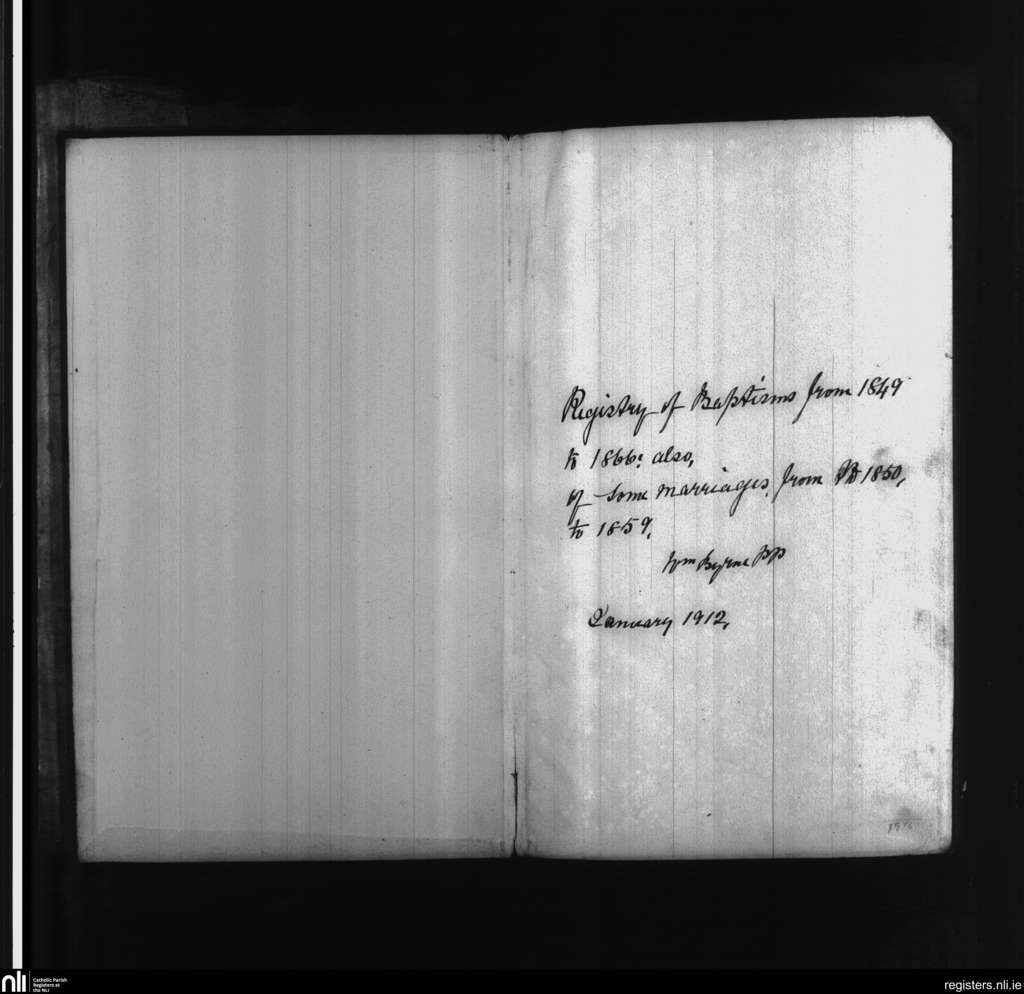 Registry of Baptisms from 1849
to 1866: also,
of some marriages, from 1850,
to 1859,
Wm Byrne PP
January 1912,
nli
Catholic Parish
Registers at
the NLI
registers.nli.ie